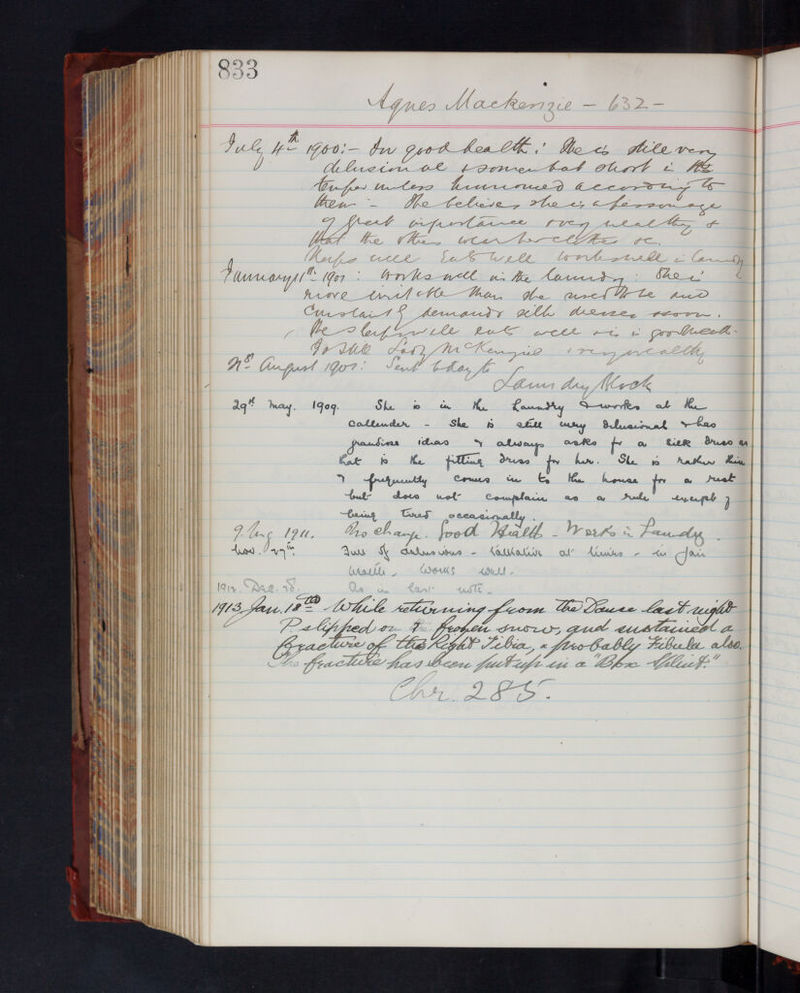 833
Agnes Mackenzie - 632 -
July 4th 1900:- In good health: She is still very
delusional & somewhat short in the
temper unless humoured according to
them - She believes she is a personage
of great importance very wealthy &
that the others wear her clothes &c.
Keeps well Eats well works well in laundry
January 11th 1901: works well in the laundry: She is
more irritable than she used to be and
constantly demands silk dresses
She sleeps well eats well & is in good health
Is still Lady McKenzie & very wealthy
August 1901: Sent today to
Laundry Block
29th May. 1909. She is in the Laundry & works at the
callender - She is still very delusional & has
grandiose ideas & always asks for a silk dress as
that is the fitting dress for her. She is rather thin
& frequently comes in to the house for a rest
but does not complain as a rule except of
being tired occasionally.
9. Aug 1911. No change. Good Health - Works in Laundry.
Nov. 27th: Full of delusions - talkative at times - in fair
health. Works well.
1912. Dec. As in last note.
1913 Jan. 18th While returning from the Dance last night
P. slipped on frozen snow, and sustained a
fracture of the Right Tibia, & probably Fibula also.
The fracture has been put up in a "Box Splint."
Chr. 285.